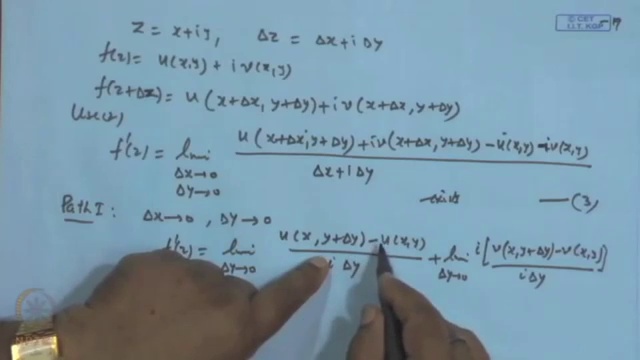 © CET
I.I.T. KGP
Z = x+iy, Δz = Δx+iΔy
f(z) = u(x,y) + i v(x,y)
f(z+Δz) = u(x+Δx, y+Δy) + i v(x+Δx, y+Δy)
Use(2)
f'(z) = lim Δx→0 Δy→0 u(x+Δx, y+Δy) + iv(x+Δx, y+Δy) - u(x,y) - iv(x,y) / Δx+iΔy
exists —(3)
Path I: Δx→0, Δy→0
f'(z) = lim Δy→0 u(x, y+Δy) - u(x,y) / i Δy + lim Δy→0 i[v(x, y+Δy) - v(x,y)] / iΔy